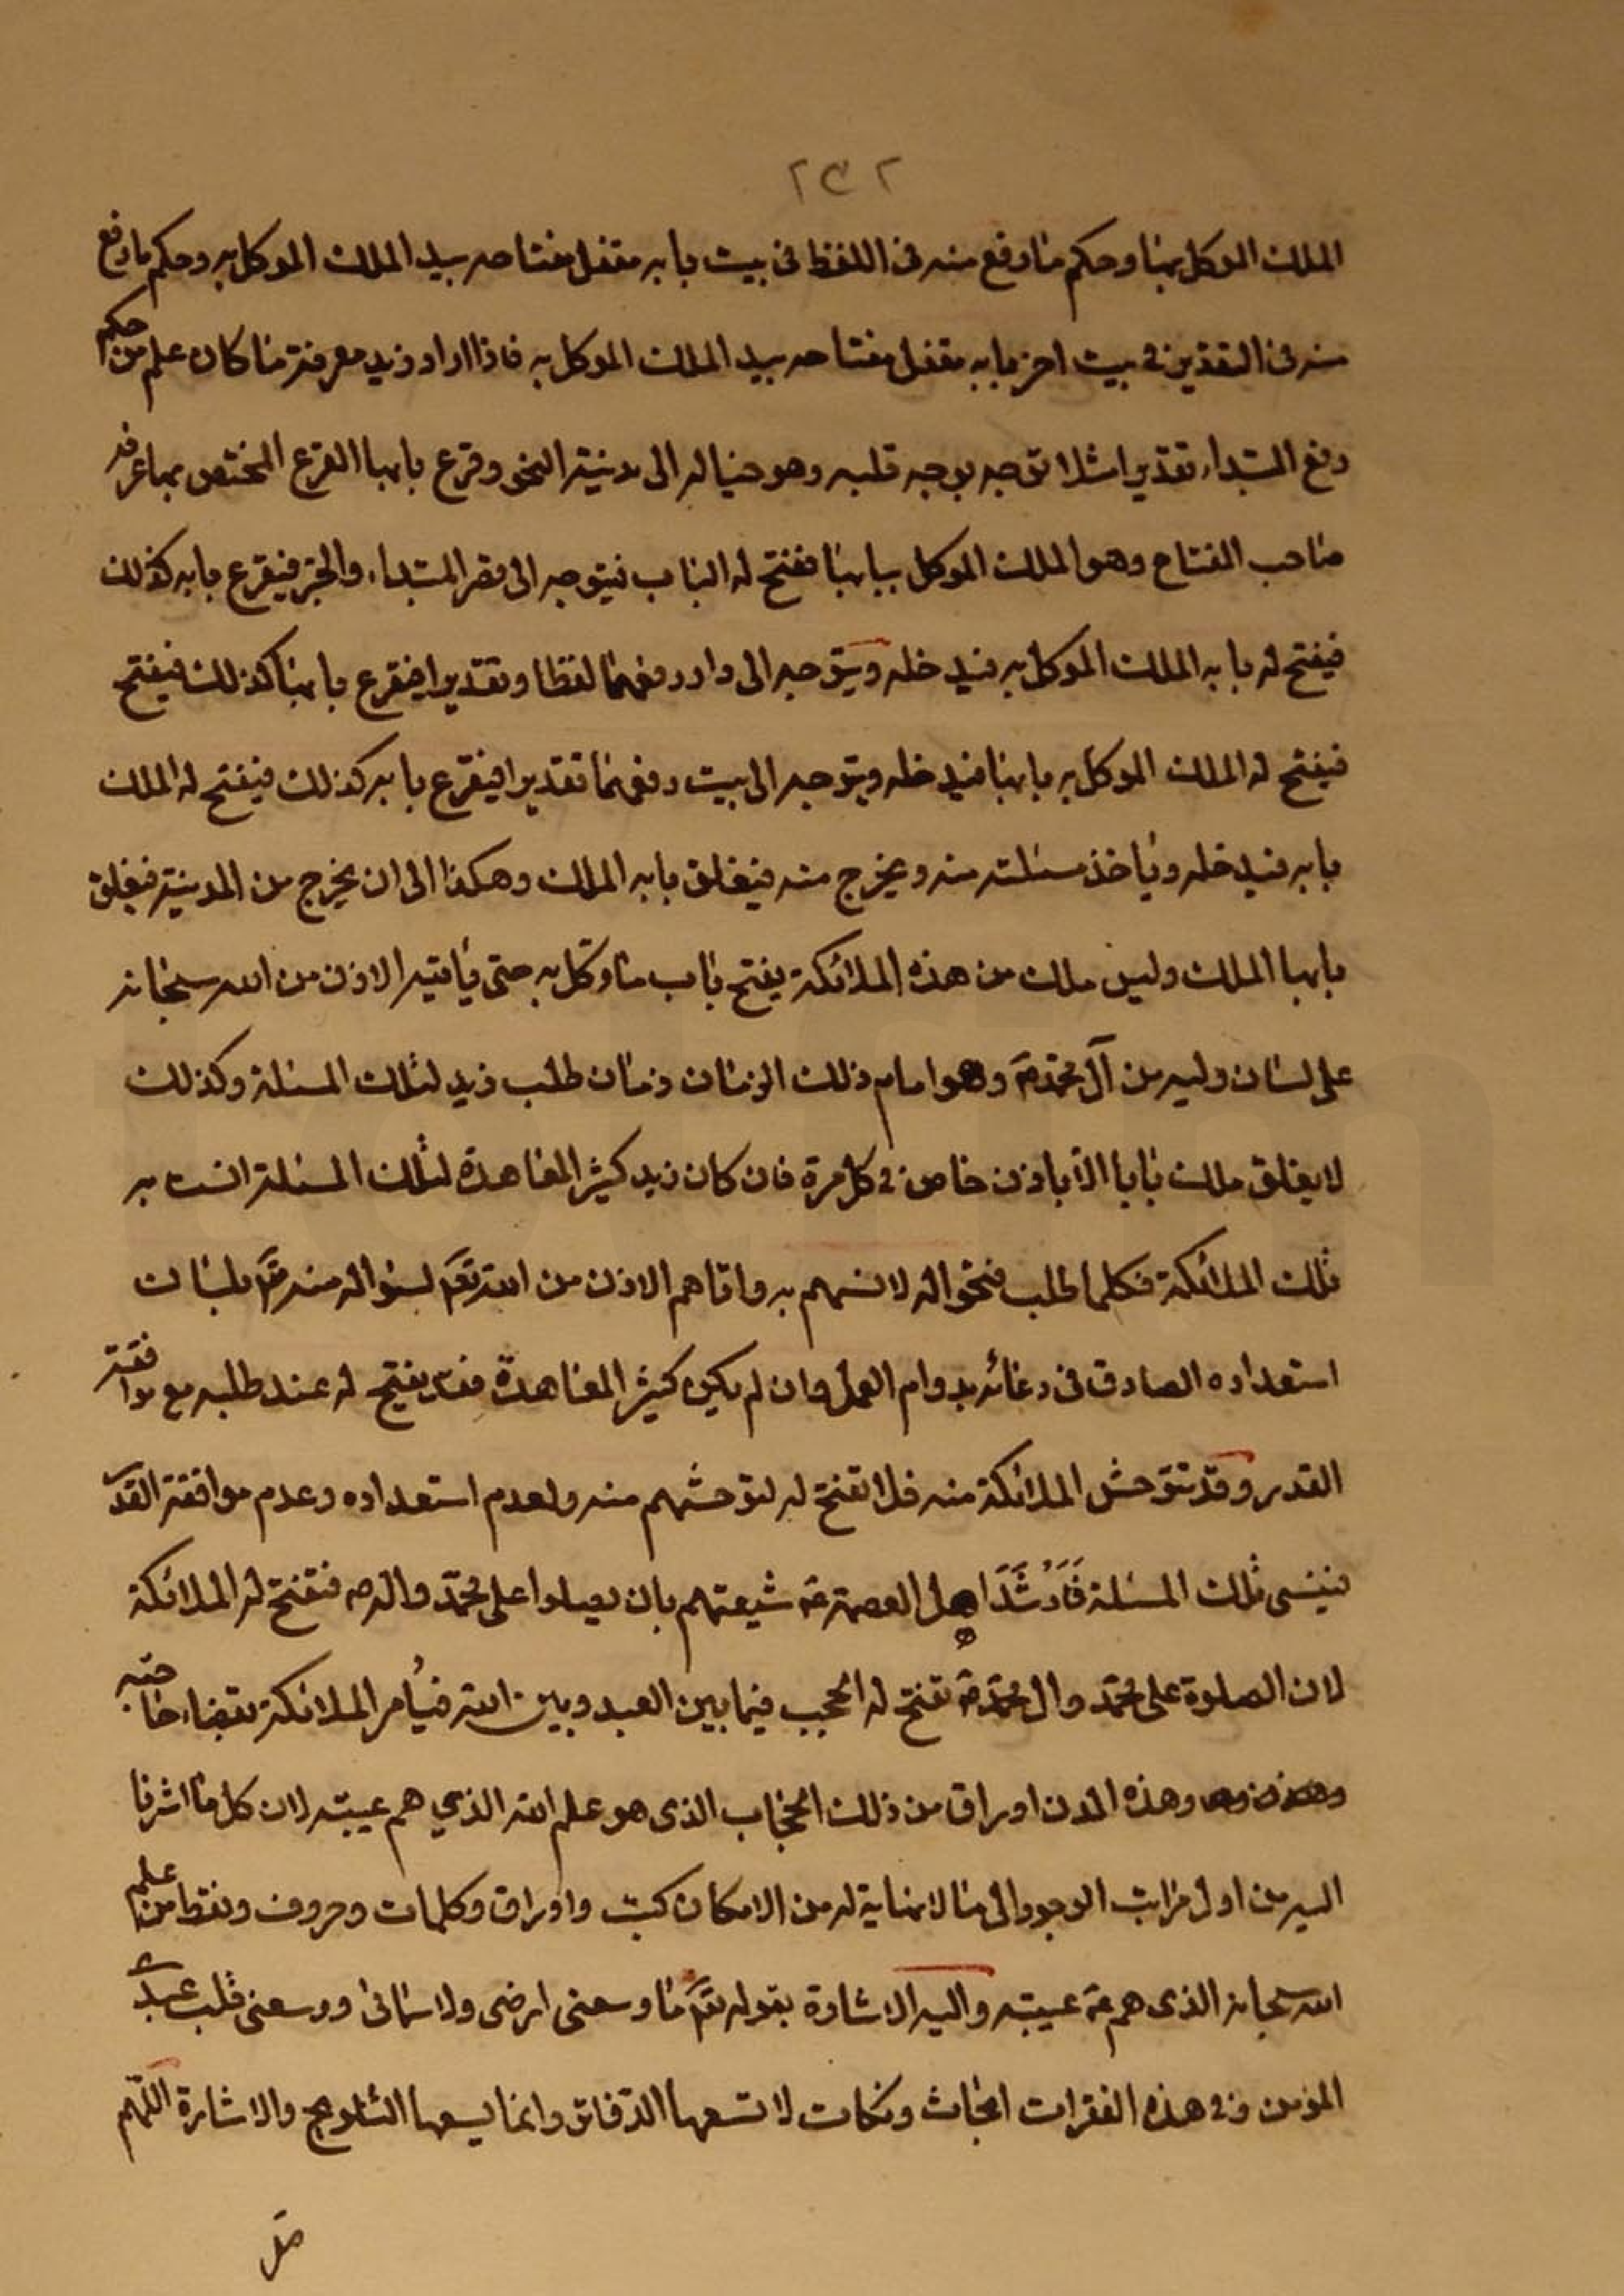 ٢٣٢
الملك الموكل بها وحكم ما رفع منه فى اللفظ فى بيت بابه مقفل مفتاحه بيد الملك الموكل به وحكم ما رفع
منه فى التقدير فى بيت اخر بابه مقفل مفتاحه بيد الملك الموكل به فاذا اراد زيد معرفة ما كان علم من حكم
رفع المبتداء تقديرا مثلا توجه بوجه قلبه وهو خياله الى مدينة النحو وقرع بابها القرع المختص بها عرفه
صاحب المفتاح وهو الملك الموكل ببابها ففتح له الباب فيتوجه الى قصر المبتداء والخبر فيقرع بابه كذلك
فيفتح له بابه الملك الموكل به فيدخله ويتوجه الى دار رفعهما لفظا وتقديرا فيقرع بابها كذلك فيفتح
فيفتح له الملك الموكل به بابها فيدخله ويتوجه الى بيت رفعهما تقديرا فيقرع بابه كذلك فيفتح له الملك
بابه فيدخله وياخذ مسئلته منه ويخرج منه فيغلق بابه الملك وهكذا الى ان يخرج من المدينة فيغلق
بابها الملك وليس ملك من هذه الملائكة يفتح باب ما وكل به حتى ياتيه الاذن من الله سبحانه
على لسان وليه من آل محمد ص وهو امام ذلك الزمان زمان طلب زيد لتلك المسئلة وكذلك
لا يغلق ملك بابا الا باذن خاص فى كل مرة فان كان زيد كثير المعاهدة لتلك المسئلة انست به
تلك الملائكة فكلما طلب فتحوا له لانسهم به واتاهم الاذن من الله تع لسؤاله منه تع بلسان
استعداده الصادق فى دعائه بدوام العمل وان لم يكن كثير المعاهدة فقد يفتح له عند طلبه مع موافقة
القدر وقد تتوحش الملائكة منه فلا تفتح له لتوحشهم منه ولعدم استعداده وعدم موافقة القدر
فينسى تلك المسئلة فَاَرْشَدَ اهل العصمة ع شيعتهم بان يصلوا على محمد واله ص فتفتح له الملائكة
لان الصلوة على محمد وال محمد ص تفتح له الحجب فيما بين العبد وبين الله فيأمر الملائكة بقضاء حاجته
وهذه المدن اوراق من ذلك الحجاب الذى هو علم الله الذي هم عيبته لان كل ما اشرنا
اليه من اول مراتب الوجود الى ما لا نهاية له من الامكان كتب واوراق وكلمات وحروف ونقط من علم
الله سبحانه الذى هم ع عيبته واليه الاشارة بقوله تع ما وسعنى ارضى ولا سمائى ووسعنى قلب عبدى
المؤمن وفى هذه الفقرات ابحاث ونكات لا تسعها الدقائق وانما يسعها التلويح والاشارة اللهم
صل